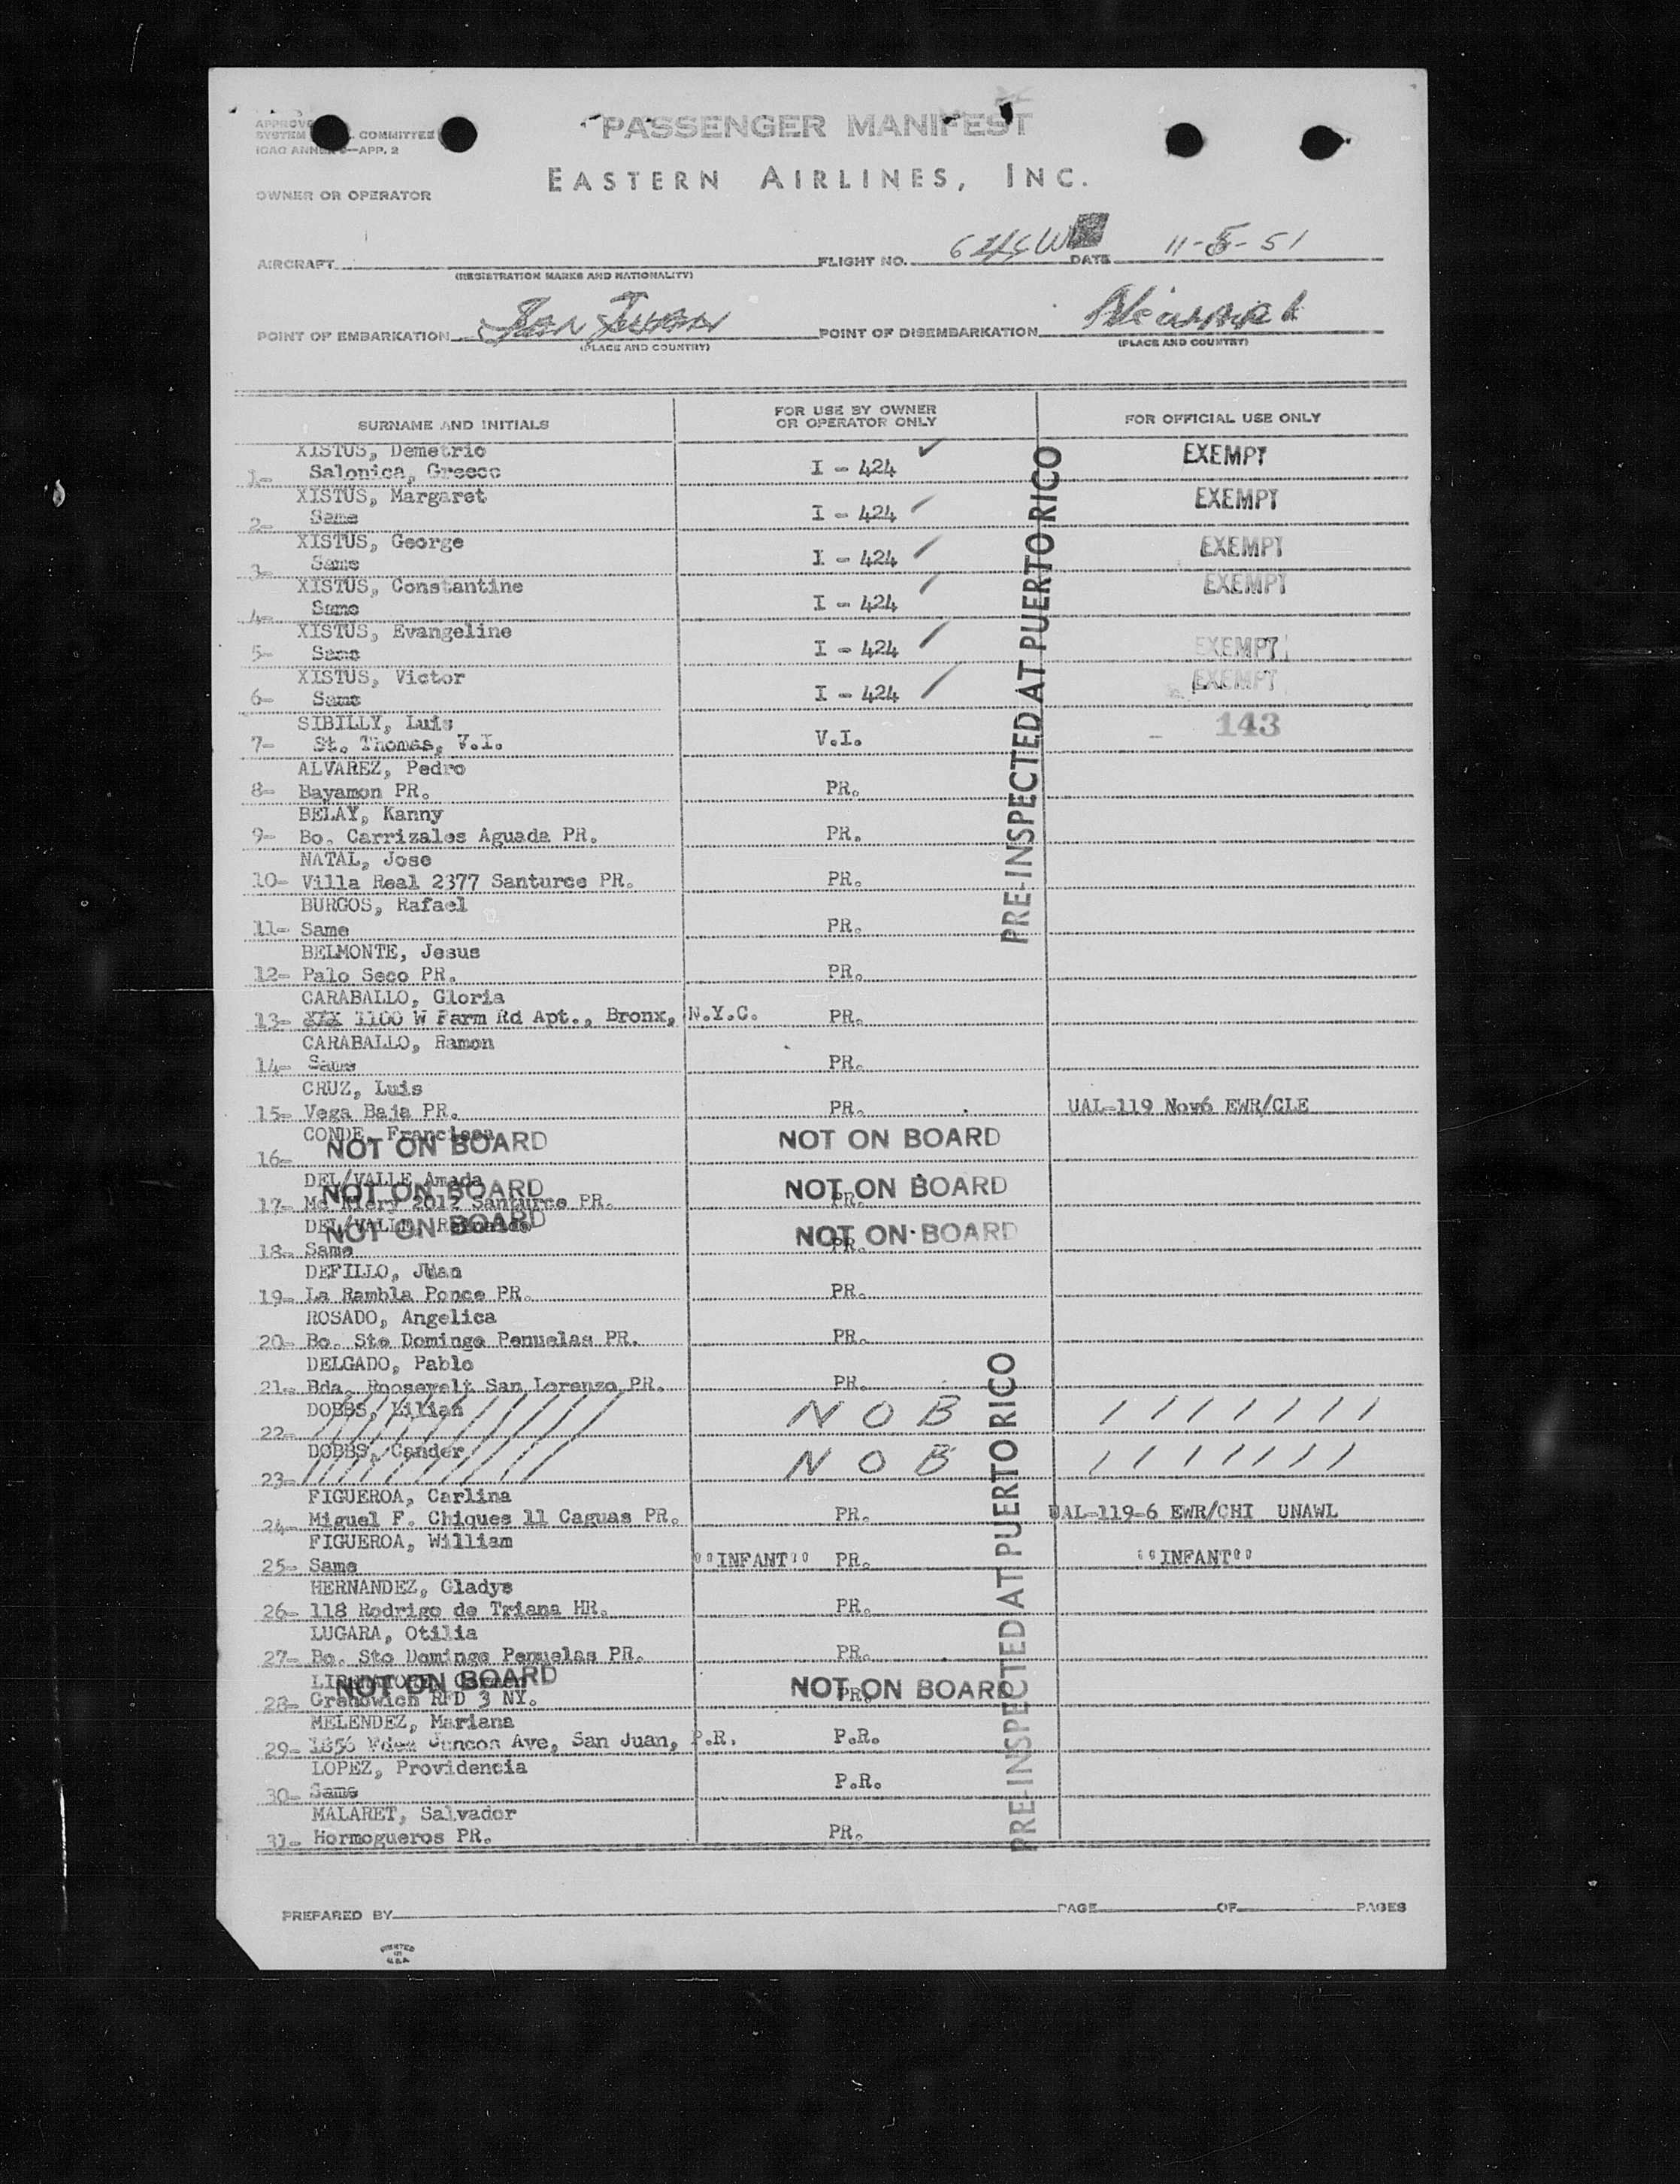 PASSENGER MANIFEST
SYSTEM COMMITTEE
ICAO ANNEX 9—APP. 2
EASTERN AIRLINES, INC.
OWNER OR OPERATOR
AIRCRAFT
(REGISTRATION MARKS AND NATIONALITY)
FLIGHT NO.
DATE 11-5-51
POINT OF EMBARKATION San Juan
(PLACE AND COUNTRY)
POINT OF DISEMBARKATION
(PLACE AND COUNTRY)
SURNAME AND INITIALS
FOR USE BY OWNER
OR OPERATOR ONLY
FOR OFFICIAL USE ONLY
PRE-INSPECTED AT PUERTO RICO
XISTUS, Demetrio EXEMPT
1- Salonica, Greece I - 424 ✓
XISTUS, Margaret EXEMPT
2- Same I - 424
XISTUS, George EXEMPT
3- Same I - 424
XISTUS, Constantine EXEMPT
4- Same I - 424
XISTUS, Evangeline
5- Same I - 424 EXEMPT
XISTUS, Victor
6- Same I - 424 EXEMPT
SIBILLY, Luis 143
7- St. Thomas, V.I. V.I.
ALVAREZ, Pedro
8- Bayamon PR. PR.
BELAY, Kanny
9- Bo. Carrizales Aguada PR. PR.
NATAL, Jose
10- Villa Real 2377 Santurce PR. PR.
BURGOS, Rafael
11- Same PR.
BELMONTE, Jesus
12- Palo Seco PR. PR.
CARABALLO, Gloria
13- XXX 1100 W Farm Rd Apt., Bronx, N.Y.C. PR.
CARABALLO, Ramon
14- Same PR.
CRUZ, Luis
15- Vega Baja PR. PR. UAL-119 Nov6 EWR/CLE
CONDE, Francisca
NOT ON BOARD NOT ON BOARD
16-
DEL/VALLE Amada
NOT ON BOARD NOT ON BOARD
17- Mc Klery 2012 Santurce PR. PR.
DEL/VALLE,
NOT ON BOARD NOT ON BOARD
18- Same PR.
DEFILLO, JUan
19- La Rambla Ponce PR. PR.
ROSADO, Angelica
20- Bo. Sto Domingo Penuelas PR. PR.
DELGADO, Pablo
21- Bda. Roosevelt San Lorenzo PR. PR.
DOBBS, Lilian N O B
22-
DOBBS, Cander N O B
23-
FIGUEROA, Carlina
24- Miguel F. Chiques 11 Caguas PR. PR. UAL-119-6 EWR/CHI UNAWL
FIGUEROA, William
25- Same "INFANT" PR. "INFANT"
HERNANDEZ, Gladys
26- 118 Rodrigo de Triana HR. PR.
LUGARA, Otilia
27- Bo. Sto Domingo Penuelas PR. PR.
NOT ON BOARD NOT ON BOARD
28- RFD 3 NY. PR.
MELENDEZ, Mariana
29- 1856 Fdez Juncos Ave, San Juan, P.R. P.R.
LOPEZ, Providencia
30- Same P.R.
MALARET, Salvador
31- Hormogueros PR. PR.
PRE-INSPECTED AT PUERTO RICO
PREPARED BY
PAGE OF PAGES
PRINTED
IN
U.S.A.